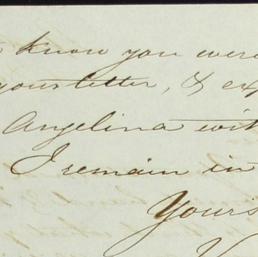 know you were
your letter, & ex
Angelina with
I remain in
Yours